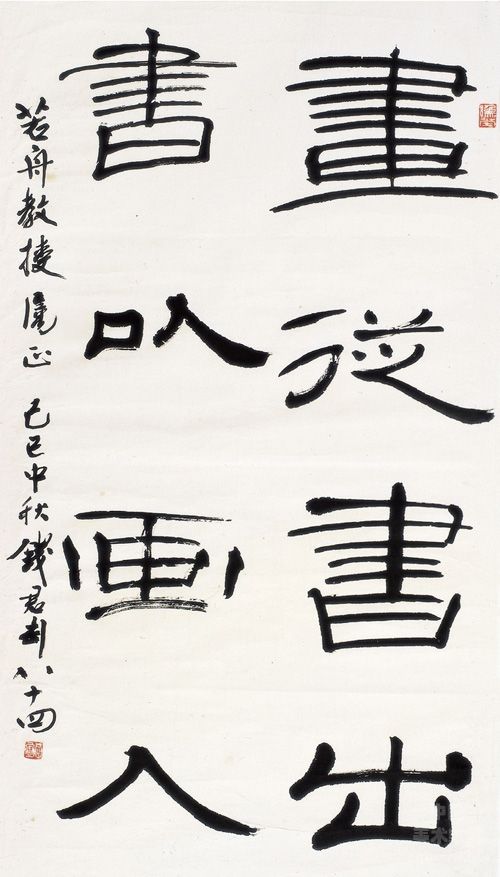 畫從書出
書以画入
若舟教授 正 己巳中秋 錢君匋八十四